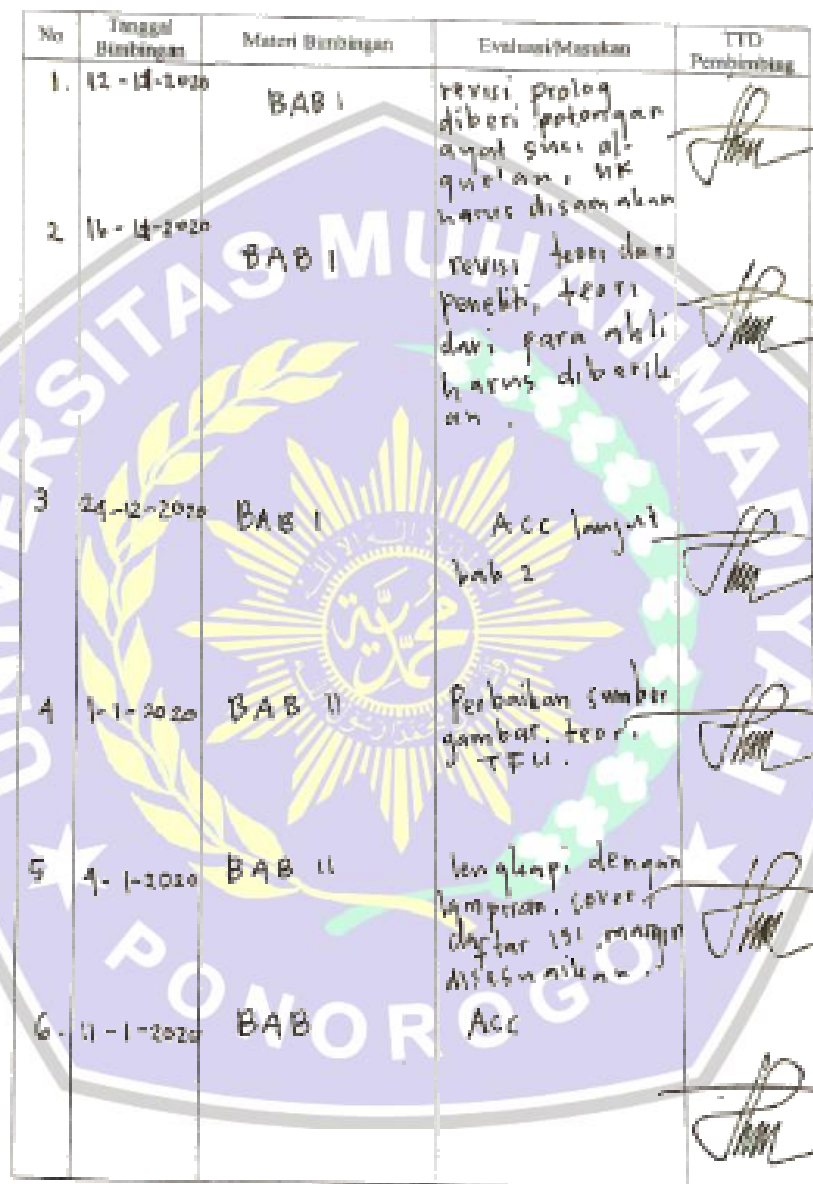 No Tanggal Bimbingan Materi Bimbingan Evaluasi/Masukan TTD Pembimbing
1. 12 - 12 - 2020 BAB I revisi prolog
diberi potongan
ayat suci al-
qur'an,
harus disamakan
2 16 - 12 - 2020 BAB I revisi teori dari
peneliti, teori
dari para ahli
harus diberik
an .
3 24-12-2020 BAB I Acc lanjut
bab 2
4 1-1-2020 BAB II Perbaikan sumber
gambar. teori
TFU.
5 4-1-2020 BAB II lengkapi dengan
lampiran, cover,
daftar isi, margin
disesuaikan.
6. 11-1-2020 BAB Acc
UNIVERSITAS MUHAMMADIYAH
PONOROGO